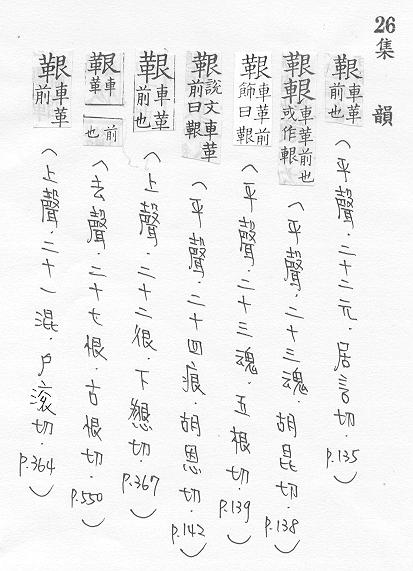 26集 韻
䩐車革前也（平聲．二十二元．居言切．P.135）
䩐䡰車革前也或作䡰（平聲．二十三魂．胡昆切．P.138）
䩐車革前飾曰䩐（平聲．二十三魂．五根切．P.139）
䩐說文車革前曰䩐（平聲．二十四痕．胡恩切．P.142）
䩐車革前也（上聲．二十二很．下懇切．P.367）
䩐車革前也（去聲．二十七恨．古恨切．P.550）
䩐車革前（上聲．二十一混．戶滾切．P.364）